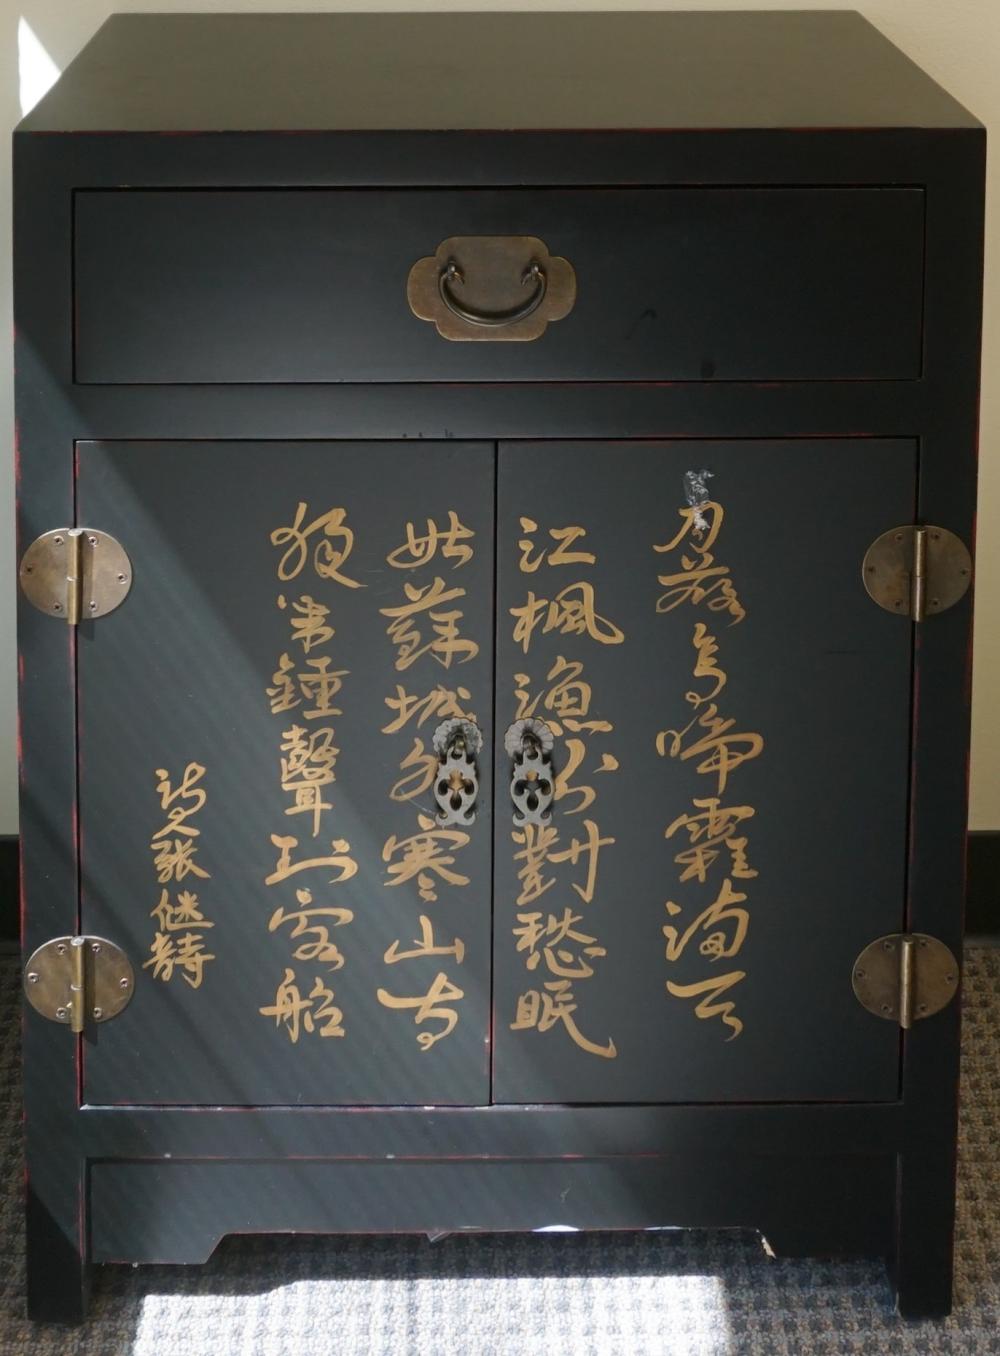 月落烏啼霜滿天
江楓漁火對愁眠
姑蘇城外寒山寺
夜半鍾聲到客船
詩人張継詩